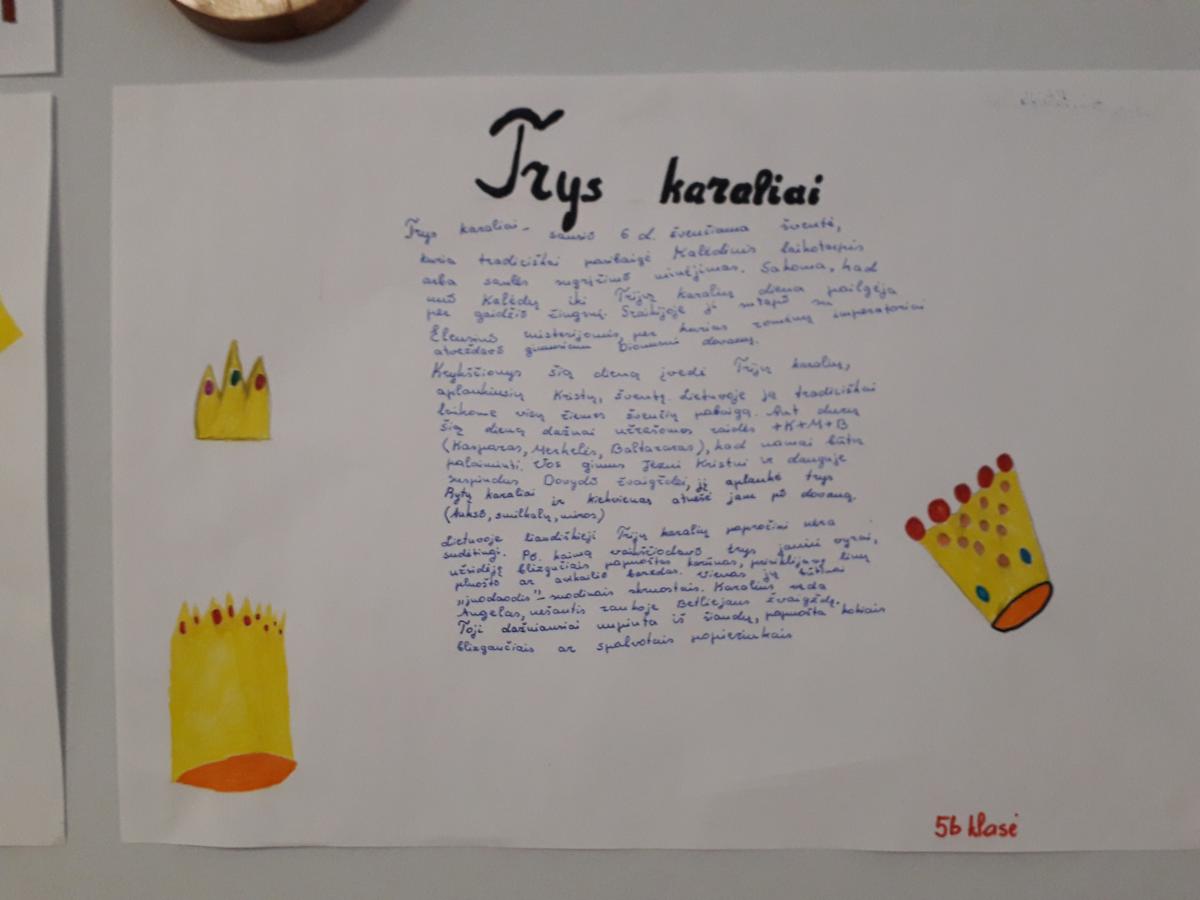 Trys karaliai
Trys karaliai - sausio 6 d. švenčiama šventė,
kuria tradiciškai pasibaigė Kalėdinis laikotarpis
arba saulės sugrįžimo minėjimas. Sakoma, kad
nuo Kalėdų iki Trijų karalių diena pailgėja
per gaidžio žingsnį. Graikijoje ji sutapo su
Eleusino misterijomis, per kurias romėnų imperatoriai
atveždavo gimusiam Dionisui dovanų.
Krykščionys šią dieną įvedė Trijų karalių,
aplankiusių Kristų, šventę. Lietuvoje ją tradiciškai
laikome visų žiemos švenčių pabaiga. Ant durų
šią dieną dažnai užrašomos raidės +K+M+B
(Kasparas, Merkelis, Baltazaras), kad namai būtų
palaiminti. Vos gimus Jėzui Kristui ir danguje
suspindus Dovydo žvaigždei, jį aplankė trys
Rytų karaliai ir kiekvienas atnešė jam po dovaną
(Aukso, smilkalų, miros)
Lietuvoje liaudiškieji Trijų karalių papročiai nėra
sudėtingi. Po kaimą vaikščiodavo trys jauni vyrai,
užsidėję blizgučiais papuoštas karūnas, prisiklijavę linų
pluošto ar avikailio barzdas. Vienas jų būtinai
„juodaodis" - suodinais skruostais. Karalius veda
Angelas, nešantis rankoje Betliejaus žvaigždę.
Toji dažniausiai nupinta iš šiaudų, papuošta kokiais
blizgučiais ar spalvotais popieriukais
5b klasė